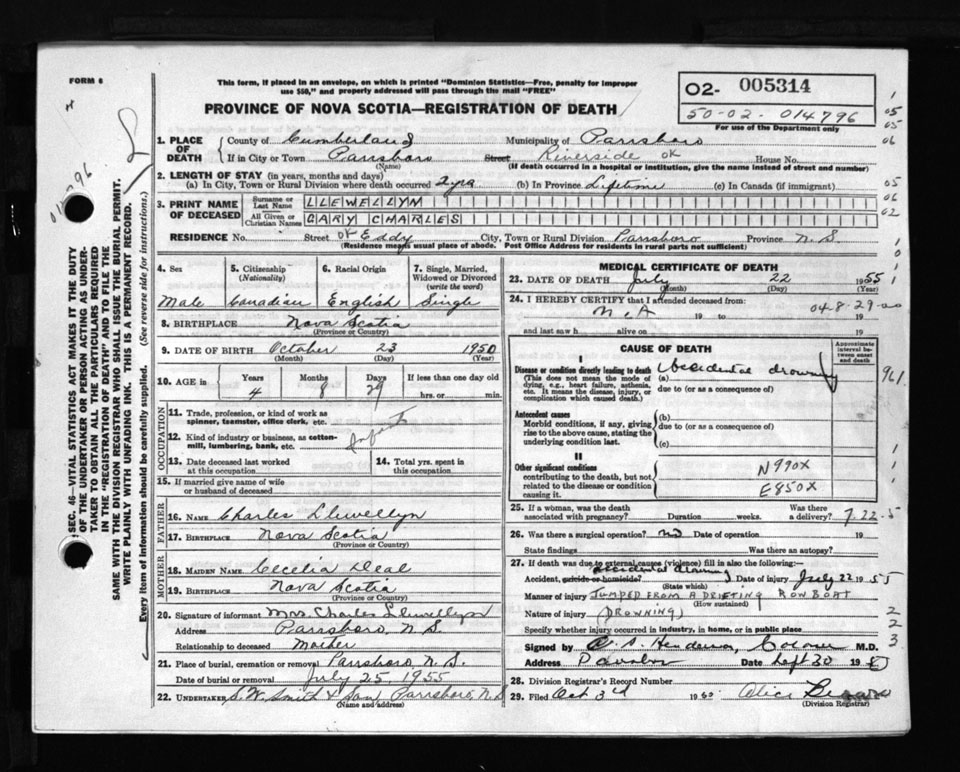 FORM 6
This form, if placed in an envelope, on which is printed "Dominion Statistics—Free, penalty for improper
use $50," and properly addressed will pass through the mail "FREE"
PROVINCE OF NOVA SCOTIA—REGISTRATION OF DEATH
02- 005314
50-02-014796
For use of the Department only
05
05
06
05
06
02
SEC. 46—VITAL STATISTICS ACT MAKES IT THE DUTY
OF THE UNDERTAKER OR PERSON ACTING AS UNDER-
TAKER TO OBTAIN ALL THE PARTICULARS REQUIRED
IN THE "REGISTRATION OF DEATH" AND TO FILE THE
SAME WITH THE DIVISION REGISTRAR WHO SHALL ISSUE THE BURIAL PERMIT.
WRITE PLAINLY WITH UNFADING INK. THIS IS A PERMANENT RECORD.
Every item of information should be carefully supplied. (See reverse side for instructions.)
1. PLACE OF DEATH
County of Cumberland Municipality of Parrsboro
If in City or Town Parrsboro Street Riverside OK House No.
(Name) (If death occurred in a hospital or institution, give the name instead of street and number)
2. LENGTH OF STAY (in years, months and days)
(a) In City, Town or Rural Division where death occurred 2 yrs (b) In Province Lifetime (c) In Canada (if immigrant)
3. PRINT NAME OF DECEASED
Surname or Last Name LLEWELLYN
All Given or Christian Names GARY CHARLES
RESIDENCE No. Street OK Eddy City, Town or Rural Division Parrsboro Province N.S.
(Residence means usual place of abode. Post Office Address for residents in rural parts not sufficient)
4. Sex Male
5. Citizenship (Nationality) Canadian
6. Racial Origin English
7. Single, Married, Widowed or Divorced (write the word) Single
8. BIRTHPLACE Nova Scotia
(Province or Country)
9. DATE OF BIRTH October 23 1950
(Month) (Day) (Year)
10. AGE in Years 4 Months 8 Days 29 If less than one day old hrs. or min.
OCCUPATION
11. Trade, profession, or kind of work as
spinner, teamster, office clerk, etc.
12. Kind of industry or business, as cotton-
mill, lumbering, bank, etc. Infant
13. Date deceased last worked
at this occupation
14. Total yrs. spent in
this occupation
15. If married give name of wife
or husband of deceased
FATHER
16. NAME Charles Llewellyn
17. BIRTHPLACE Nova Scotia
(Province or Country)
MOTHER
18. MAIDEN NAME Cecelia Deal
19. BIRTHPLACE Nova Scotia
(Province or Country)
20. Signature of informant Mrs. Charles Llewellyn
Address Parrsboro, N.S.
Relationship to deceased Mother
21. Place of burial, cremation or removal Parrsboro, N.S.
Date of burial or removal July 25, 1955
22. UNDERTAKER S. W. Smith & Son, Parrsboro, N.S
(Name and address)
MEDICAL CERTIFICATE OF DEATH
23. DATE OF DEATH July 22 1955
(Month) (Day) (Year)
24. I HEREBY CERTIFY that I attended deceased from: 04-8-29-00
19 to 19
and last saw h alive on 19
CAUSE OF DEATH
Approximate interval between onset and death
I
Disease or condition directly leading to death
(This does not mean the mode of
dying, e.g., heart failure, asthenia,
etc. It means the disease, injury, or
complication which caused death.)
(a) Accidental drowning
due to (or as a consequence of)
961
Antecedent causes
Morbid conditions, if any, giving
rise to the above cause, stating the
underlying condition last.
(b)
due to (or as a consequence of)
(c)
II
Other significant conditions
contributing to the death, but not
related to the disease or condition
causing it.
N990X
E850X
25. If a woman, was the death
associated with pregnancy? Duration weeks. Was there
a delivery? 7-22-5
26. Was there a surgical operation? no Date of operation 19
State findings Was there an autopsy?
27. If death was due to external causes (violence) fill in also the following:—
accidental drowning
Accident, suicide or homicide? Date of injury July 22 1955
(State which)
Manner of injury JUMPED FROM A DRIFTING ROWBOAT
(How sustained)
Nature of injury (DROWNING)
Specify whether injury occurred in industry, in home, or in public place
2
2
3
Signed by Henderson, Coroner M.D.
Address Parrsboro Date Sept 30 19
28. Division Registrar's Record Number
29. Filed Oct 3rd 1960 Alice
(Division Registrar)